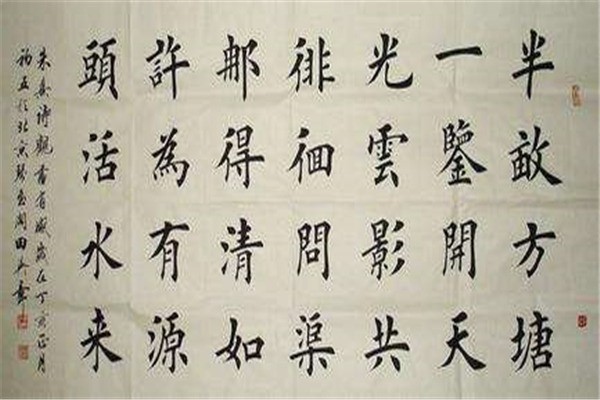 半畝方塘
一鑒開天
光雲影共
徘徊問渠
那得清如
許為有源
頭活水来
朱熹诗觀書有感歲在丁亥正月
初五於北京閣田